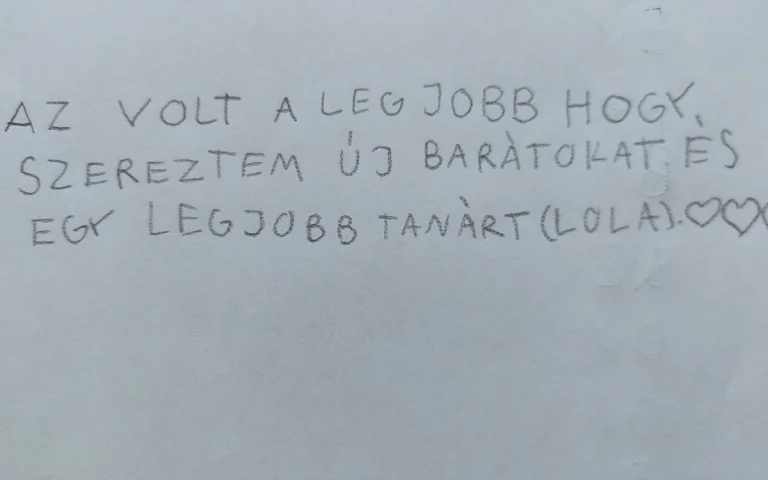 AZ VOLT A LEGJOBB HOGY,
SZEREZTEM ÚJ BARÀTOKAT ÉS
EGY LEGJOBB TANÀRT(LOLA).♡♡♡